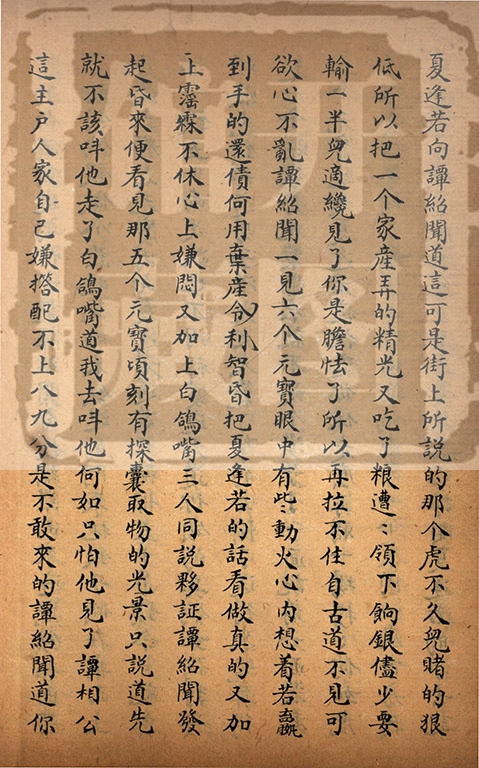 夏逢若向譚紹聞道這可是街上所說的那个虎不久兒賭的狠
低所以把一个家産弄的精光又吃了粮遭〻領下餉銀儘少要
輸一半兒適纔見了你是膽怯了所以再拉不住自古道不見可
欲心不亂譚紹聞一見六个元寶眼中有些〻動火心内想着若贏
到手的還債何用棄産令利智昏把夏逢若的話看做真的又加
上霪霖不休心上嫌悶又加上白鴿嘴三人同說夥証譚紹聞發
起昏來便看見那五个元寶頃刻有探囊取物的光景只說道先
就不該呌他走了白鴿嘴道我去呌他何如只怕他見了譚相公
這主户人家自己嫌搭配不上八九分是不敢來的譚紹聞道你